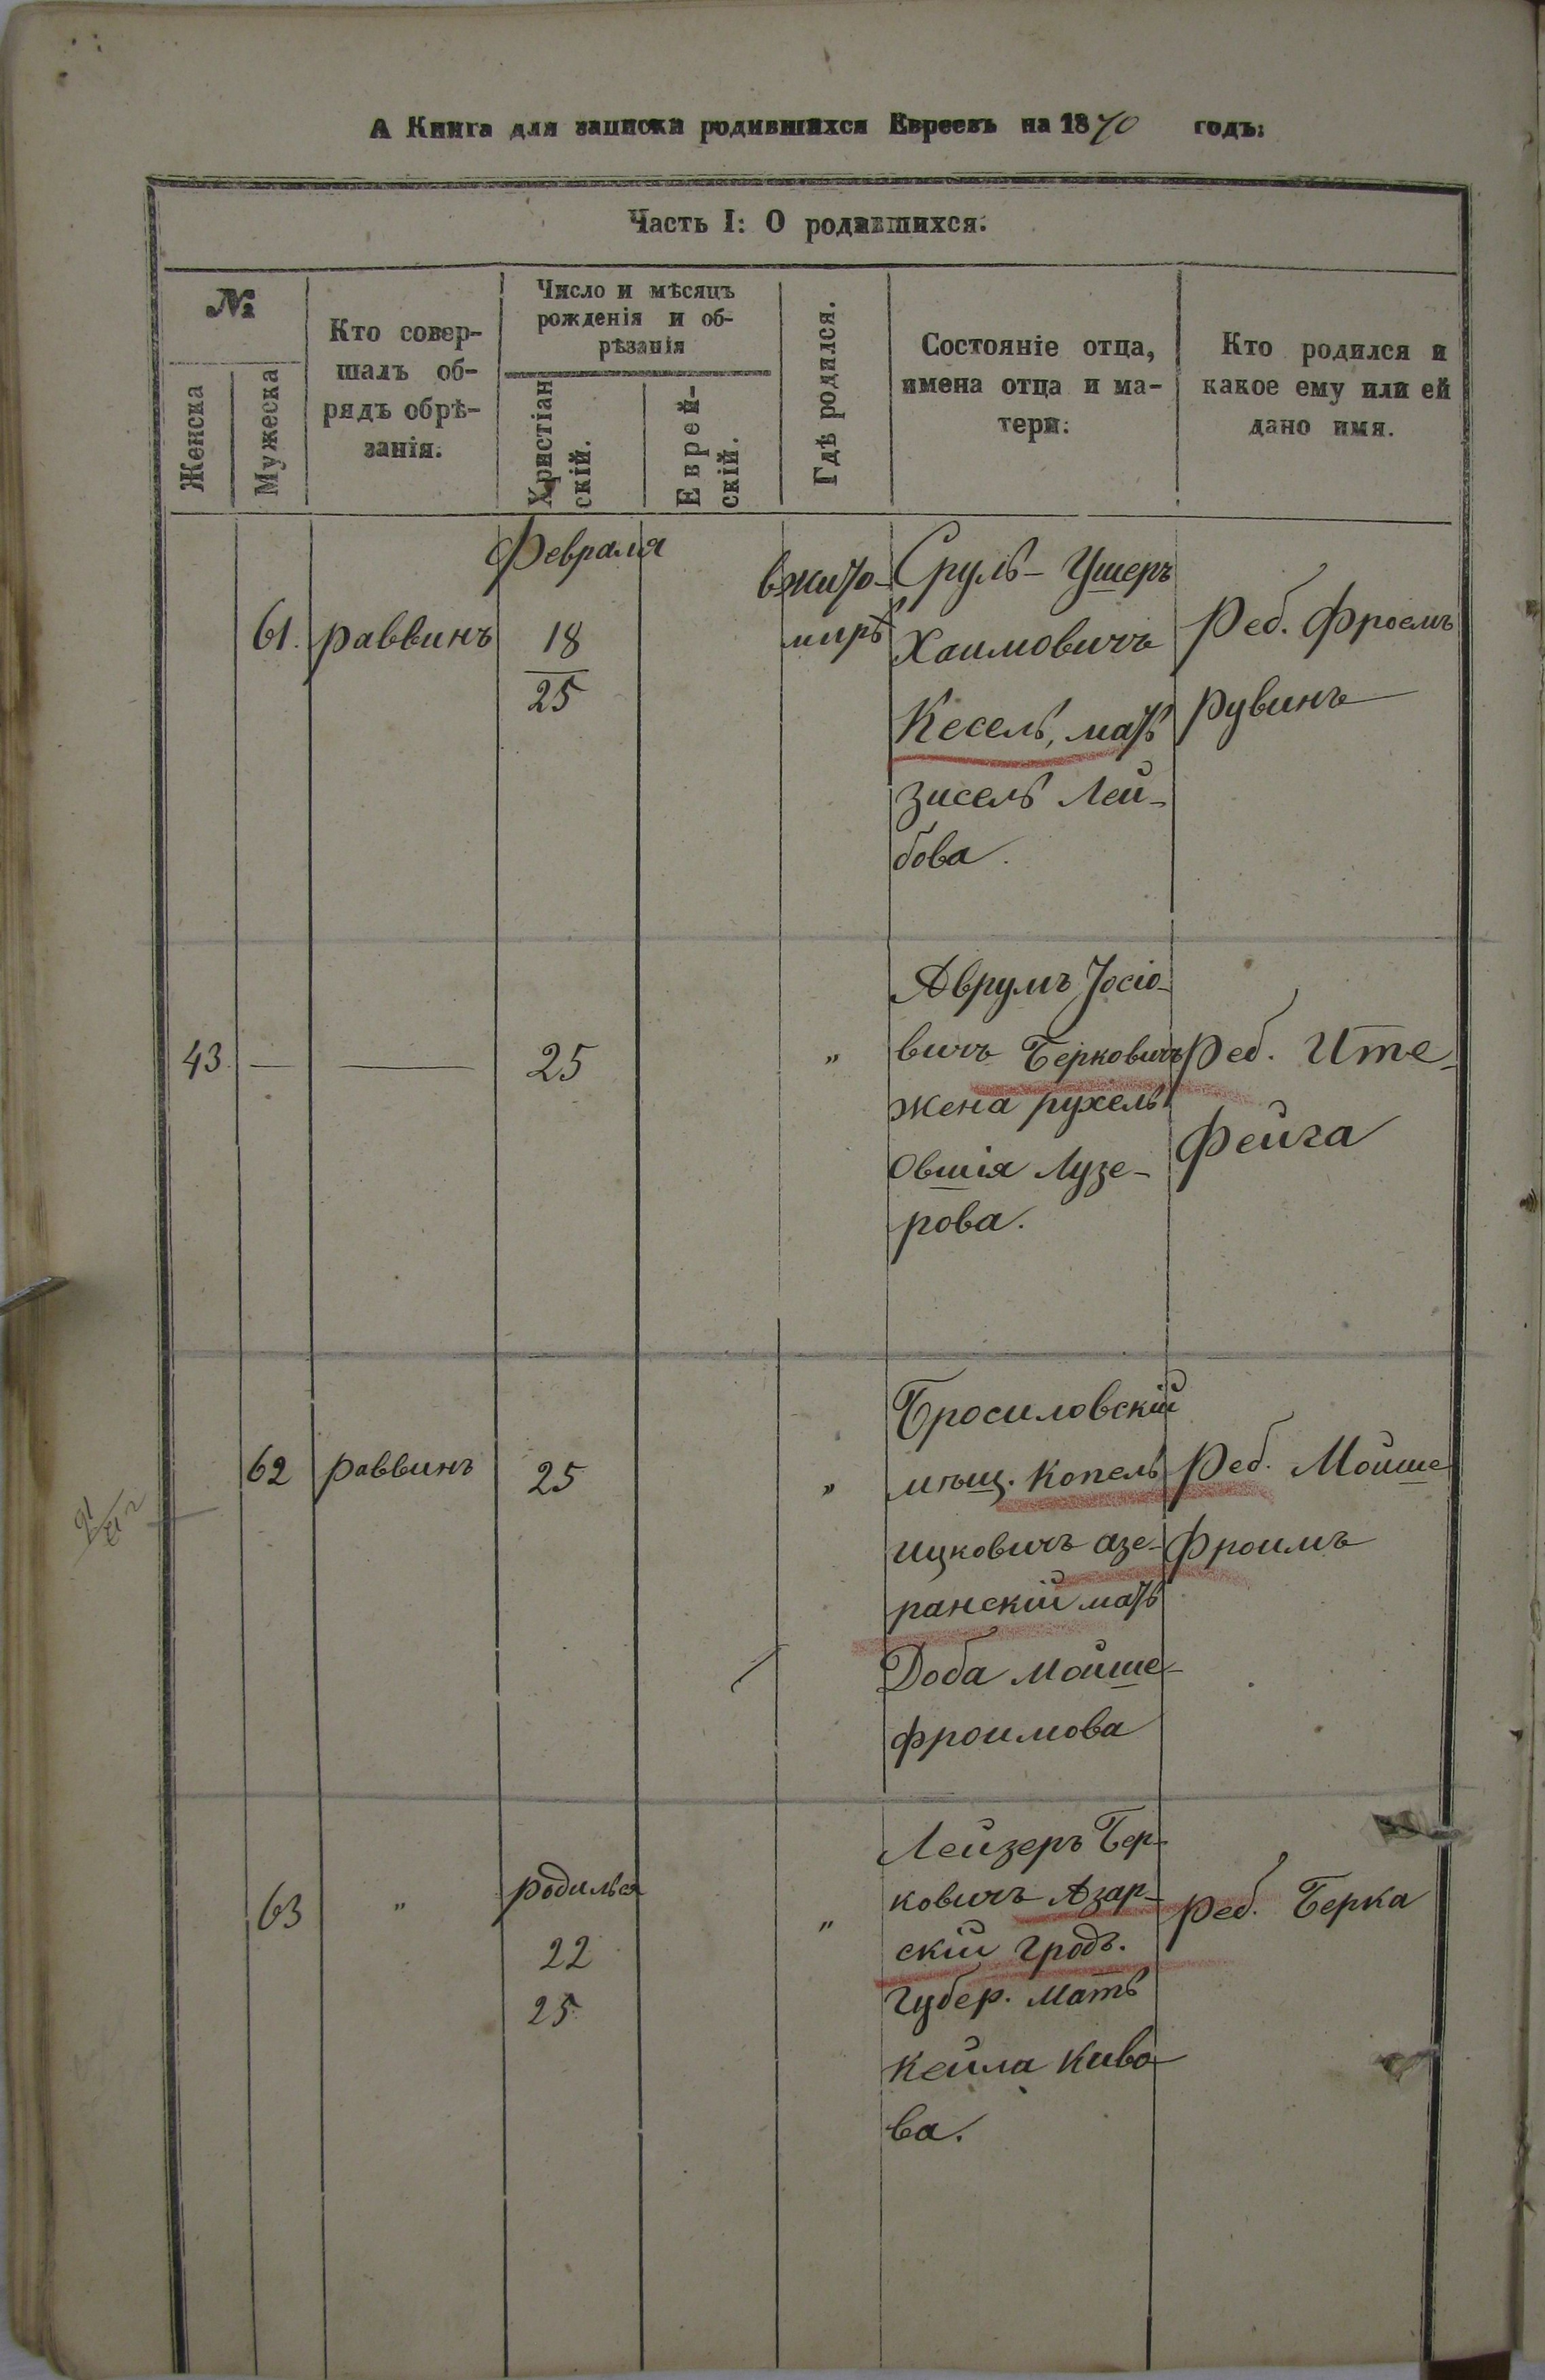 А Книга для записки родившихся Евреевъ на 1870 годъ:
Часть I: О родившихся.
№
Женска
Мужеска
Кто совер-
шалъ об-
рядъ обрѣ-
занія.
Число и мѣсяцъ
рожденія и об-
рѣзанія
Христіан
скій.
Еврей-
скій.
Гдѣ родился.
Состояніе отца,
имена отца и ма-
тери:
Кто родился и
какое ему или ей
дано имя.
Февраля
61.
раввинъ
18
25
вжито-
мирѣ
Сруль-Ушеръ
Хаимовичъ
Кесель, мать
Зисель Лей-
бова.
Реб. Фроемъ
Рувинъ
43.
—
25
"
Аврумъ Іосіо-
вичъ Берковичъ
жена рухель
Овшія Лузе-
рова.
Реб. Ите-
Фейга
62
раввинъ
25
"
Бросиловскій
мѣщ. Копель
Ицковичъ азе-
ранскій мать
Доба Мойше-
фроимова
Реб. Мойше
Фроимъ
63
"
родилься
22
25
"
Лейзеръ Бер-
ковичъ Азар-
скій Грод.
Губер. мать
Кейла Киво-
ва.
Реб. Берка